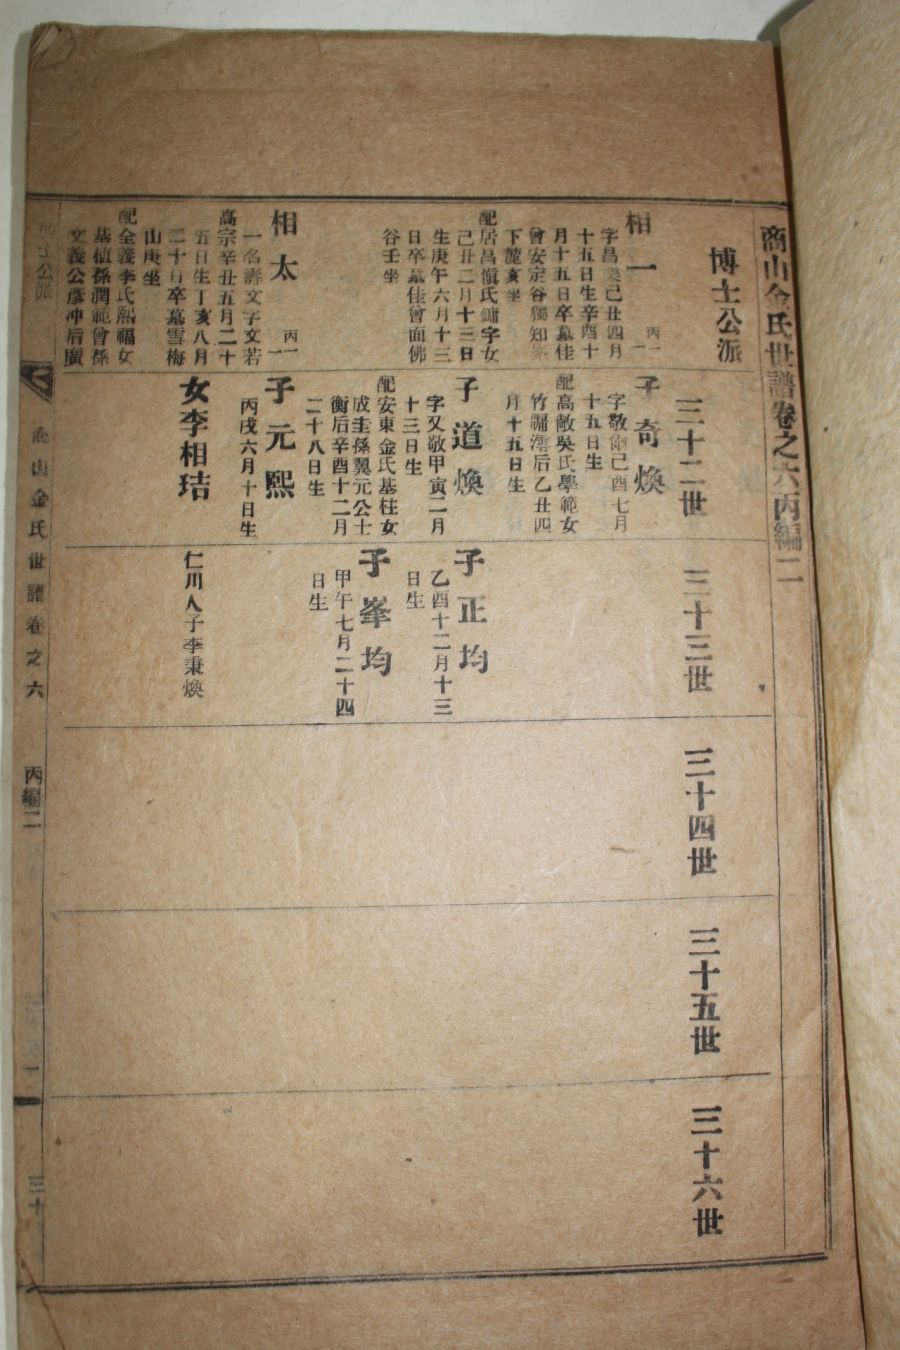 商山金氏世譜卷之六丙編二
博士公派
相一
丙一
一
字昌
己丑四月
十五日生辛酉十
月十五日卒墓佳
曾安定谷獨知
下麓亥坐
配居昌愼氏鏞字女
己丑二月十三日
生庚午六月十三
日卒墓佳曾面佛
谷壬坐
相太
丙一
一
一名壽文字文若
高宗辛丑五月二十
五日生丁亥八月
二十日卒墓雪梅
山庚坐
配全義李氏熙福女
基植孫潤範曾孫
文義公彥冲后廣
三十二世
子奇煥
字敬
己酉七月
十五日生
配高敞吳氏學範女
竹
后乙丑四
月十五日生
子道煥
字又敬甲寅二月
十三日生
配安東金氏基柱女
成圭孫翼元公士
衡后辛酉十二月
二十八日生
子元熙
丙戌六月十日生
女李相琺
三十三世
子正均
乙酉十二月十三
日生
子峯均
甲午七月二十四
日生
仁川人子李秉煥
三十四世
三十五世
三十六世
公派
商山金氏世譜卷之六
丙編二
一
三十